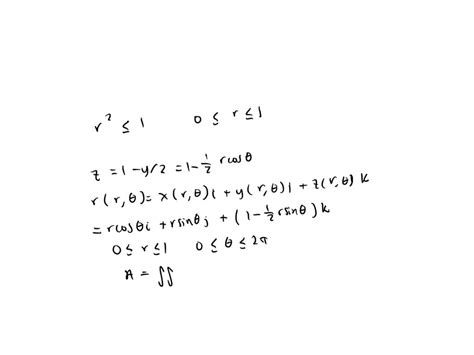 r² ≤ 1    0 ≤ r ≤ 1
z = 1 - y/2 = 1 - 1/2 r cos θ
r(r, θ) = x(r, θ) i + y(r, θ) j + z(r, θ) k
= r cos θ i + r sin θ j + (1 - 1/2 r sin θ) k
0 ≤ r ≤ 1    0 ≤ θ ≤ 2π
A = ∬